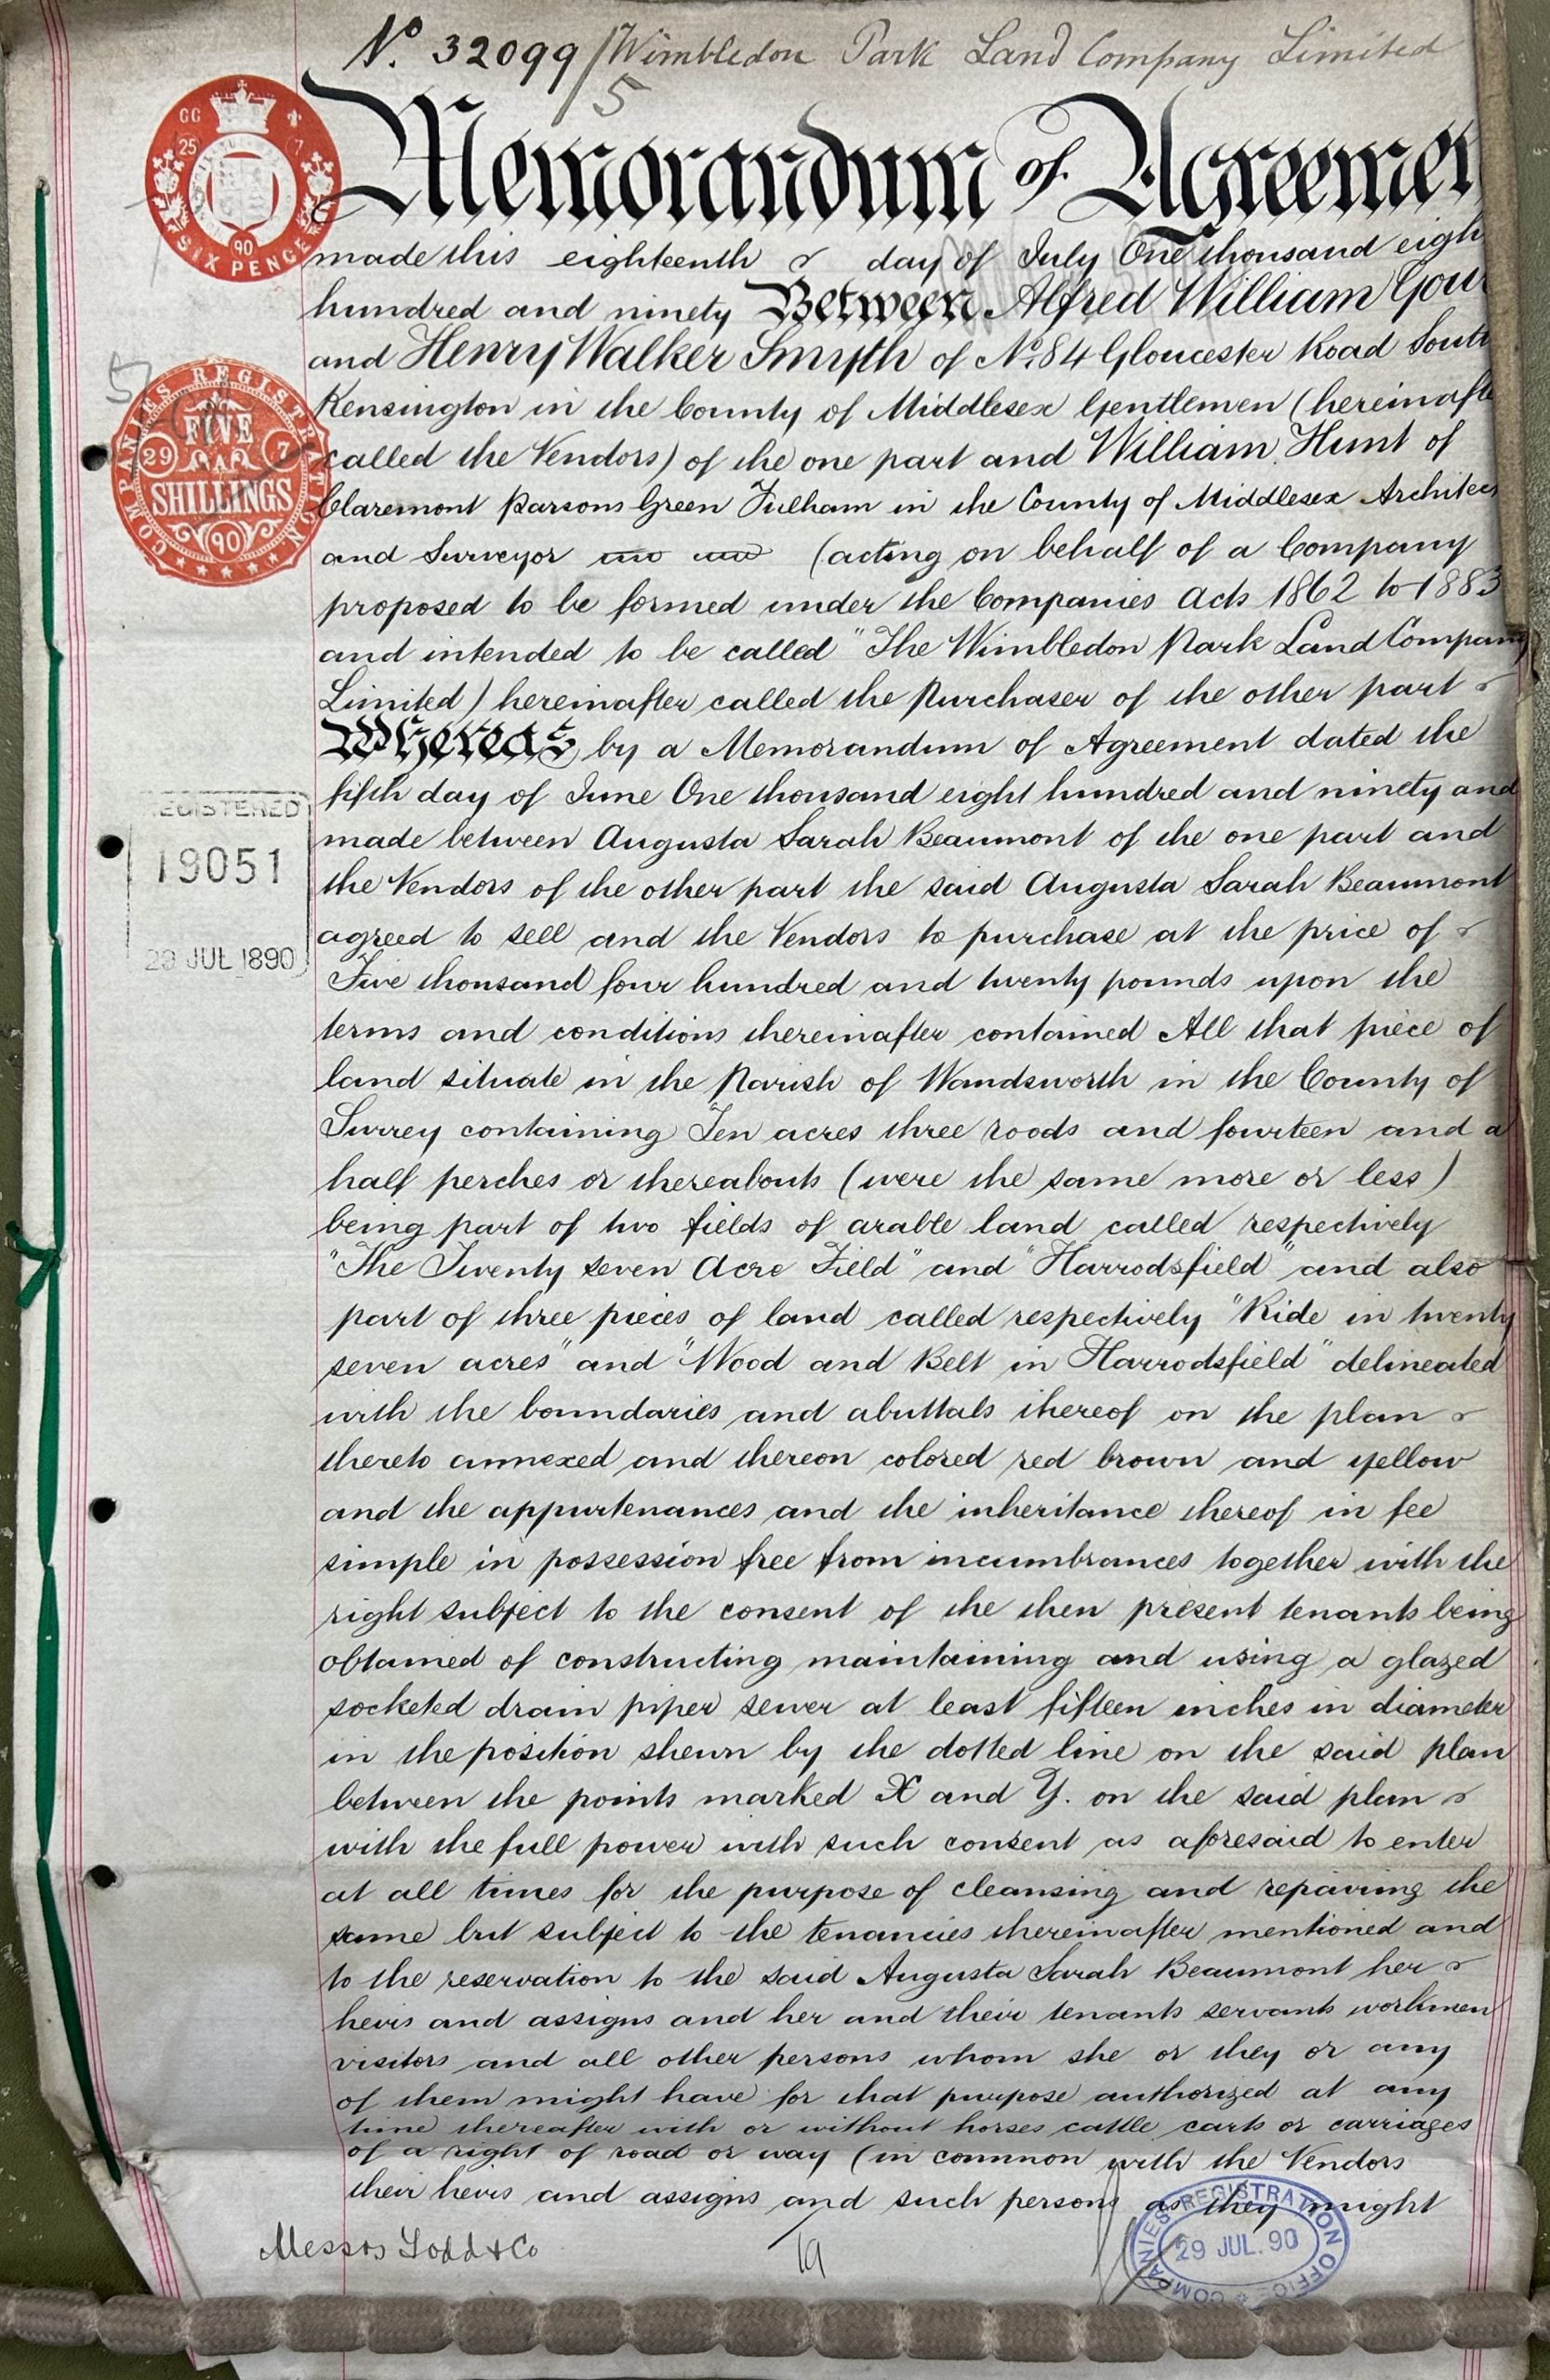 No. 32099/5 Wimbledon Park Land Company Limited
CC
25 7
90
SIX PENCE
Memorandum of Agreemen
made this eighteenth day of July One thousand eigh
hundred and ninety Between Alfred William Gou
and Henry Walker Smyth of No. 84 Gloucester Road South
Kensington in the County of Middlesex Gentlemen (hereinafte
called the Vendors) of the one part and William Hunt of
Claremont Parsons Green Fulham in the County of Middlesex Architect
and Surveyor (acting on behalf of a Company
proposed to be formed under the Companies Acts 1862 to 1883
and intended to be called "The Wimbledon Park Land Company
Limited) hereinafter called the Purchaser of the other part
Whereas by a Memorandum of Agreement dated the
fifth day of June One thousand eight hundred and ninety and
made between Augusta Sarah Beaumont of the one part and
the Vendors of the other part the said Augusta Sarah Beaumont
agreed to sell and the Vendors to purchase at the price of
Five thousand four hundred and twenty pounds upon the
terms and conditions thereinafter contained All that piece of
land situate in the Parish of Wandsworth in the County of
Surrey containing Ten acres three roods and fourteen and a
half perches or thereabouts (were the same more or less)
being part of two fields of arable land called respectively
"The Twenty seven Acre Field" and "Harrodsfield" and also
part of three pieces of land called respectively "Ride in twenty
seven acres" and "Wood and Belt in Harrodsfield" delineated
with the boundaries and abuttals thereof on the plan
thereto annexed and thereon colored red brown and yellow
and the appurtenances and the inheritance thereof in fee
simple in possession free from incumbrances together with the
right subject to the consent of the then present tenants being
obtained of constructing maintaining and using a glazed
socketed drain piper sewer at least fifteen inches in diameter
in the position shewn by the dotted line on the said plan
between the points marked X and Y. on the said plan
with the full power with such consent as aforesaid to enter
at all times for the purpose of cleansing and repairing the
same but subject to the tenancies thereinafter mentioned and
to the reservation to the said Augusta Sarah Beaumont her
heirs and assigns and her and their tenants servants workmen
visitors and all other persons whom she or they or any
of them might have for that purpose authorized at any
time thereafter with or without horses cattle carts or carriages
of a right of road or way (in common with the Vendors
their heirs and assigns and such persons as they might
COMPANIES REGISTRATION
FIVE
29 7
SHILLINGS
90
REGISTERED
19051
29 JUL 1890
Messrs Todd & Co
19
COMPANIES REGISTRATION OFFICE
29 JUL. 90